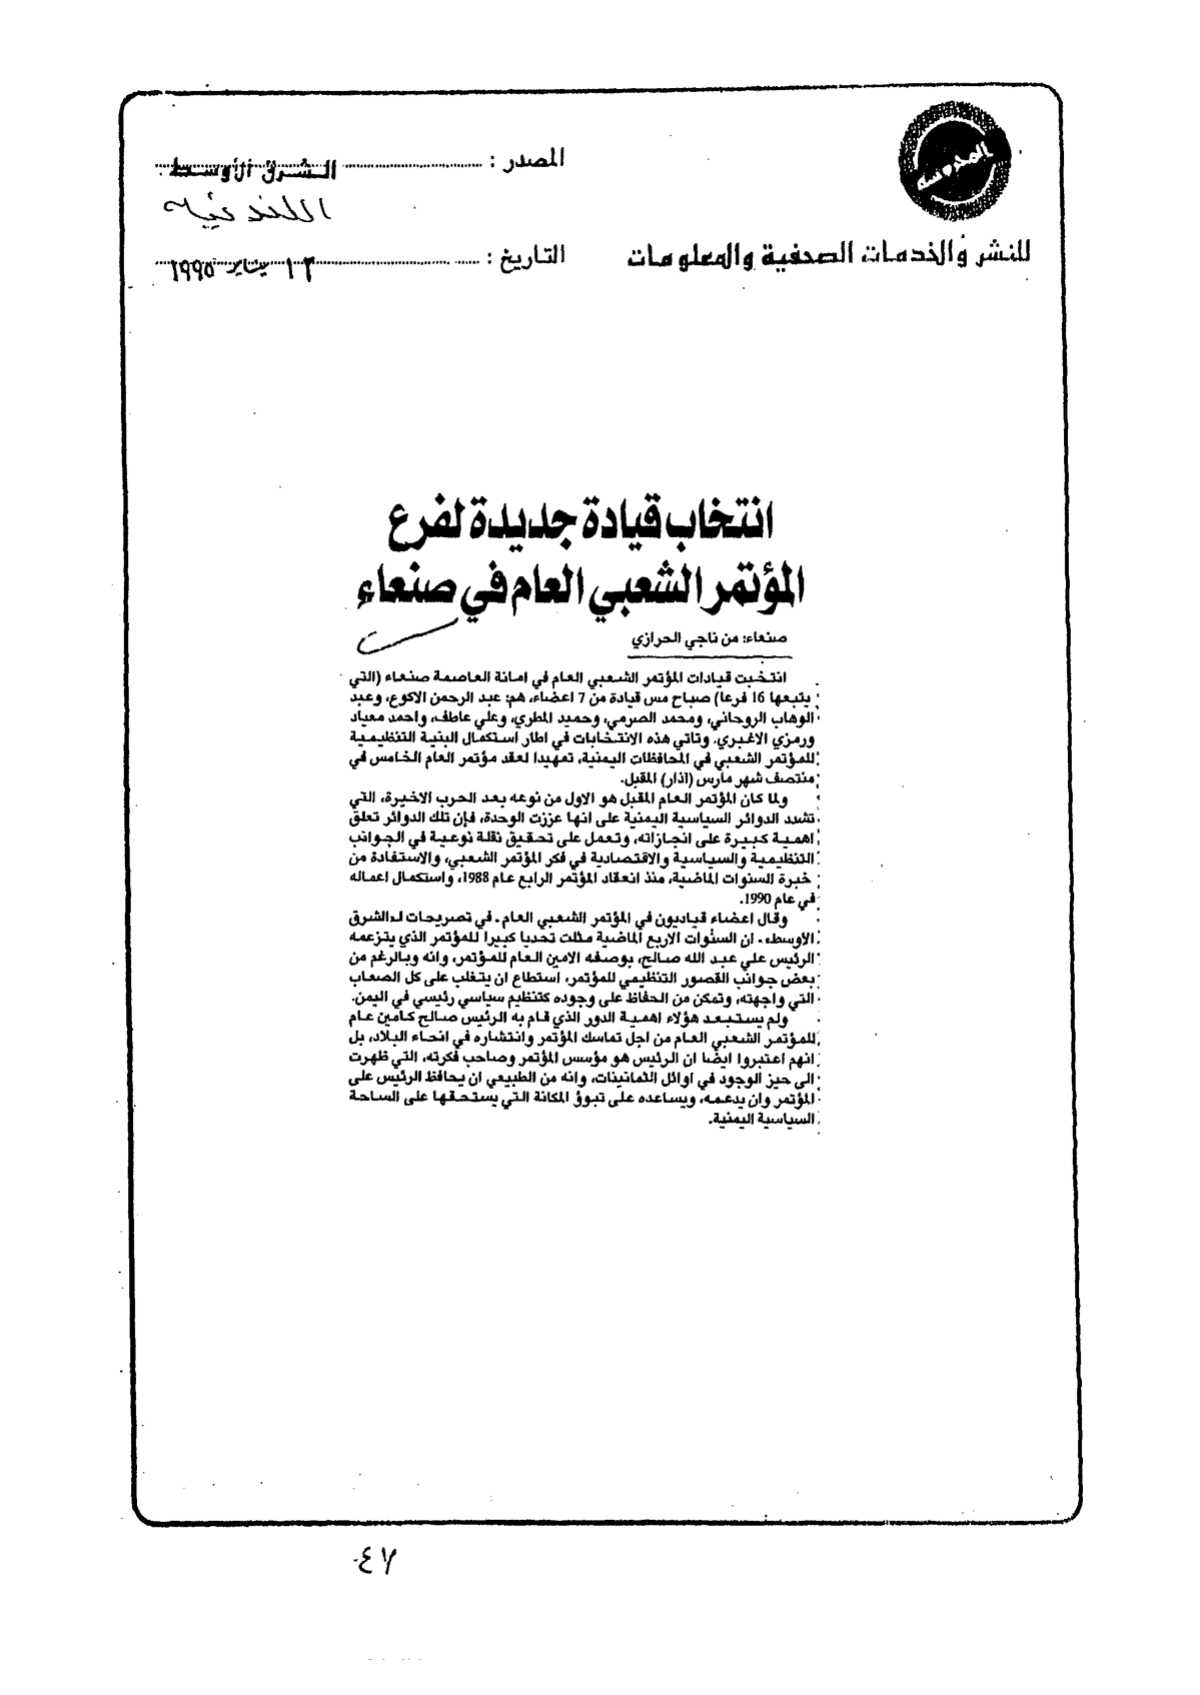 المحروسه
للنشر والخدمات الصحفية والمعلومات
المصدر : الشرق الأوسط
اللندنيه
التاريخ : ١٣ يناير ١٩٩٥
انتخاب قيادة جديدة لفرع
المؤتمر الشعبي العام في صنعاء
صنعاء: من ناجي الحرازي
انتخبت قيادات المؤتمر الشعبي العام في امانة العاصمة صنعاء (التي
يتبعها 16 فرعا) صباح مس قيادة من 7 اعضاء، هم: عبد الرحمن الاكوع، وعبد
الوهاب الروحاني، ومحمد الصرمي، وحميد المطري، وعلي عاطف، واحمد معياد
ورمزي الاغبري. وتاتي هذه الانتخابات في اطار استكمال البنية التنظيمية
للمؤتمر الشعبي في المحافظات اليمنية، تمهيدا لعقد مؤتمر العام الخامس في
منتصف شهر مارس (اذار) المقبل.
ولما كان المؤتمر العام المقبل هو الاول من نوعه بعد الحرب الاخيرة، التي
تشدد الدوائر السياسية اليمنية على انها عززت الوحدة، فإن تلك الدوائر تعلق
اهمية كبيرة على انجازاته، وتعمل على تحقيق نقلة نوعية في الجوانب
التنظيمية والسياسية والاقتصادية في فكر المؤتمر الشعبي، والاستفادة من
خبرة السنوات الماضية، منذ انعقاد المؤتمر الرابع عام 1988، واستكمال اعماله
في عام 1990.
وقال اعضاء قياديون في المؤتمر الشعبي العام ـ في تصريحات لـ«الشرق
الأوسط» ـ ان السنوات الاربع الماضية مثلت تحديا كبيرا للمؤتمر الذي يتزعمه
الرئيس علي عبد الله صالح، بوصفه الامين العام للمؤتمر، وانه وبالرغم من
بعض جوانب القصور التنظيمي للمؤتمر، استطاع ان يتغلب على كل الصعاب
التي واجهته، وتمكن من الحفاظ على وجوده كتنظيم سياسي رئيسي في اليمن.
ولم يستبعد هؤلاء اهمية الدور الذي قام به الرئيس صالح كامين عام
للمؤتمر الشعبي العام من اجل تماسك المؤتمر وانتشاره في انحاء البلاد، بل
انهم اعتبروا ايضا ان الرئيس هو مؤسس المؤتمر وصاحب فكرته، التي ظهرت
الى حيز الوجود في اوائل الثمانينات، وانه من الطبيعي ان يحافظ الرئيس على
المؤتمر وان يدعمه، ويساعده على تبوؤ المكانة التي يستحقها على الساحة
السياسية اليمنية.
٤٧